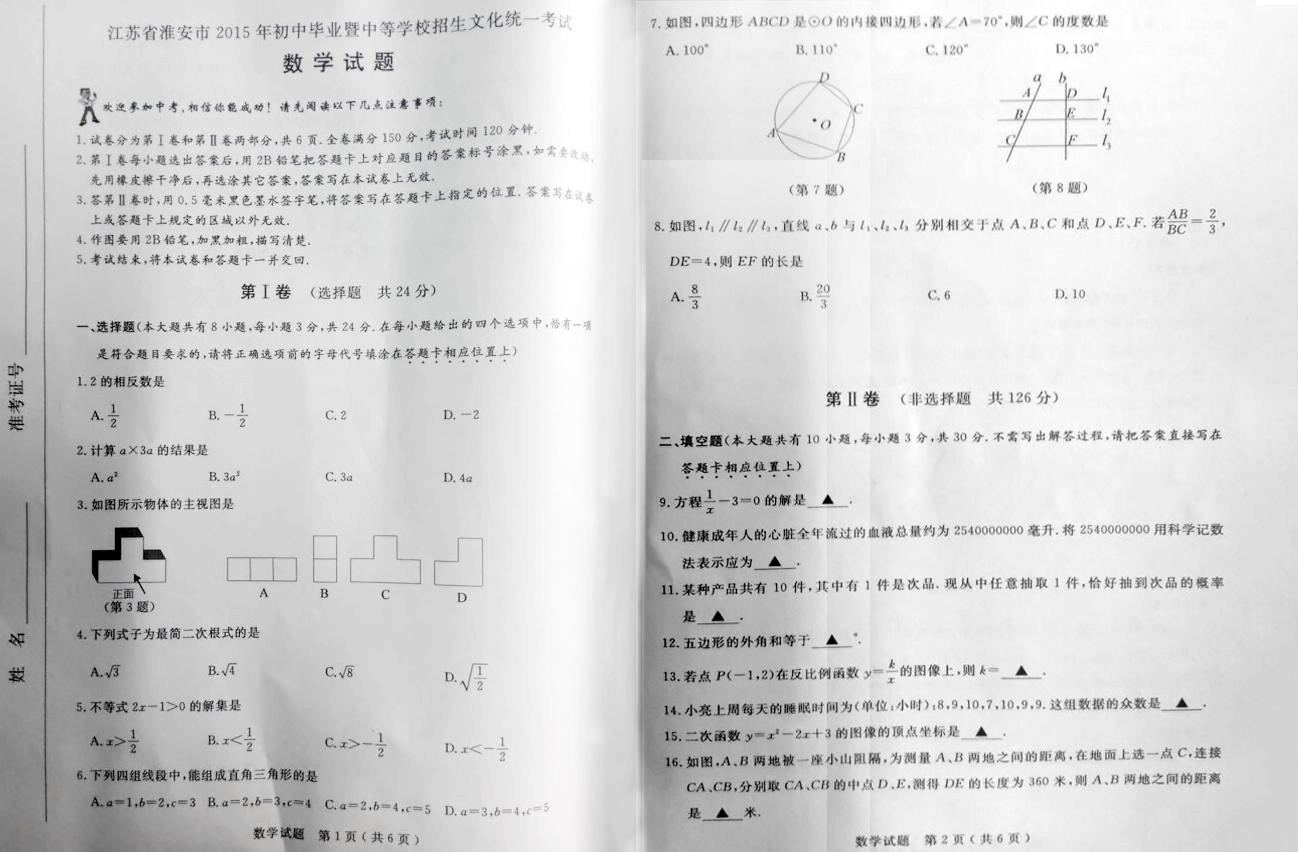 江苏省淮安市2015年初中毕业暨中等学校招生文化统一考试
数学试题
欢迎参加中考,相信你能成功！请先阅读以下几点注意事项:
1.试卷分为第Ⅰ卷和第Ⅱ卷两部分,共6页.全卷满分150分,考试时间120分钟.
2.第Ⅰ卷每小题选出答案后,用2B铅笔把答题卡上对应题目的答案标号涂黑,如需要改动,
先用橡皮擦干净后,再选涂其它答案,答案写在本试卷上无效.
3.答第Ⅱ卷时,用0.5毫米黑色墨水签字笔,将答案写在答题卡上指定的位置.答案写在试卷
上或答题卡上规定的区域以外无效.
4.作图要用2B铅笔,加黑加粗,描写清楚.
5.考试结束,将本试卷和答题卡一并交回.
第Ⅰ卷 (选择题 共24分)
一、选择题(本大题共有8小题,每小题3分,共24分.在每小题给出的四个选项中,恰有一项
是符合题目要求的,请将正确选项前的字母代号填涂在答题卡相应位置上)
1.2的相反数是
A.1/2 B.-1/2 C.2 D.-2
2.计算a×3a的结果是
A.a² B.3a² C.3a D.4a
3.如图所示物体的主视图是
正面
(第3题)
A B C D
4.下列式子为最简二次根式的是
A.√3 B.√4 C.√8 D.√(1/2)
5.不等式2x-1>0的解集是
A.x>1/2 B.x<1/2 C.x>-1/2 D.x<-1/2
6.下列四组线段中,能组成直角三角形的是
A.a=1,b=2,c=3 B.a=2,b=3,c=4 C.a=2,b=4,c=5 D.a=3,b=4,c=5
数学试题 第1页(共6页)
准考证号
姓 名
7.如图,四边形ABCD是⊙O的内接四边形,若∠A=70°,则∠C的度数是
A.100° B.110° C.120° D.130°
D
C
O
A
B
(第7题)
a b
A D l₁
B E l₂
C F l₃
(第8题)
8.如图,l₁∥l₂∥l₃,直线a、b与l₁、l₂、l₃分别相交于点A、B、C和点D、E、F.若AB/BC=2/3,
DE=4,则EF的长是
A.8/3 B.20/3 C.6 D.10
第Ⅱ卷 (非选择题 共126分)
二、填空题(本大题共有10小题,每小题3分,共30分.不需写出解答过程,请把答案直接写在
答题卡相应位置上)
9.方程1/x-3=0的解是 ▲ .
10.健康成年人的心脏全年流过的血液总量约为2540000000毫升.将2540000000用科学记数
法表示应为 ▲ .
11.某种产品共有10件,其中有1件是次品.现从中任意抽取1件,恰好抽到次品的概率
是 ▲ .
12.五边形的外角和等于 ▲ °.
13.若点P(-1,2)在反比例函数y=k/x的图像上,则k= ▲ .
14.小亮上周每天的睡眠时间为(单位:小时):8,9,10,7,10,9,9.这组数据的众数是 ▲ .
15.二次函数y=x²-2x+3的图像的顶点坐标是 ▲ .
16.如图,A、B两地被一座小山阻隔,为测量A、B两地之间的距离,在地面上选一点C,连接
CA、CB,分别取CA、CB的中点D、E,测得DE的长度为360米,则A、B两地之间的距离
是 ▲ 米.
数学试题 第2页(共6页)